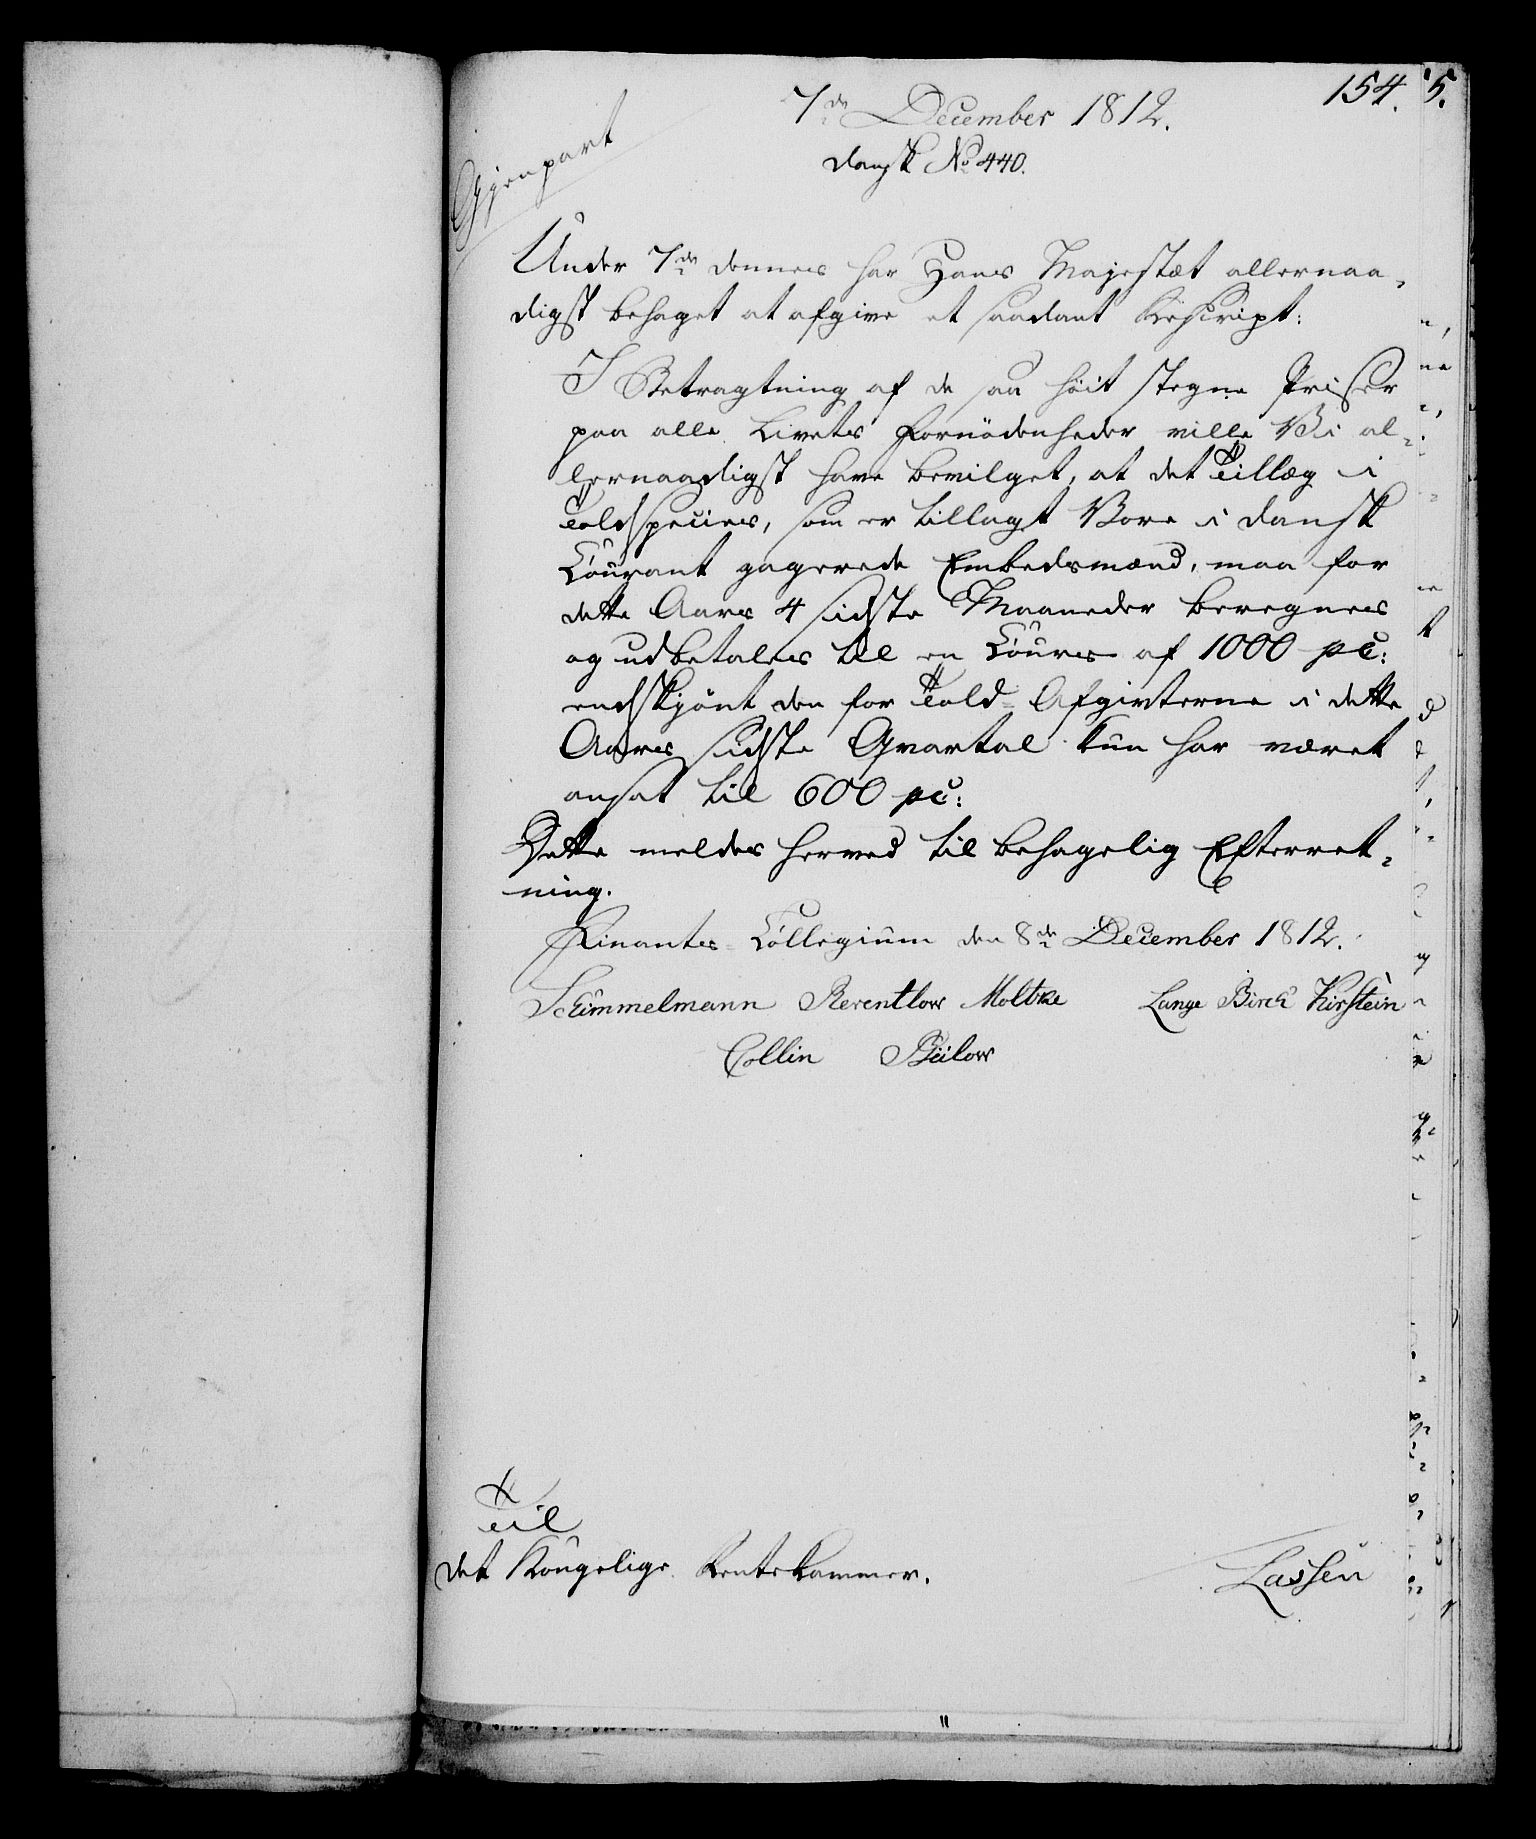 154.
7de December 1812.
Dansk No 440.
Gjenpart
Under 7de dennes har Hans Majestæt allernaa-
digst behaget at afgive et saadant Rescript:
I Betragtning af de saa høit stegne Priser
paa alle Livets Fornødenheder ville Vi al-
lernaadigst have bevilget, at det Tillæg i
Toldspecies, som er tillagt Vore i dansk
Courant gagerede Embedsmænd, maa for
dette Aars 4 sidste Maaneder beregnes
og udbetales til en Cours af 1000 pC:
endskjønt den for Told-Afgivterne i dette
Aares sidste Qvartal kun har været
ansat til 600 pC:
Dette meldes herved til behagelig Efterret-
ning.
Finants-Collegium den 8de December 1812.
Schimmelmann Reventlow Moltke Lange Birch Kirstein
Collin Bülow
Til
det Kongelige Rentekammer.
Lassen